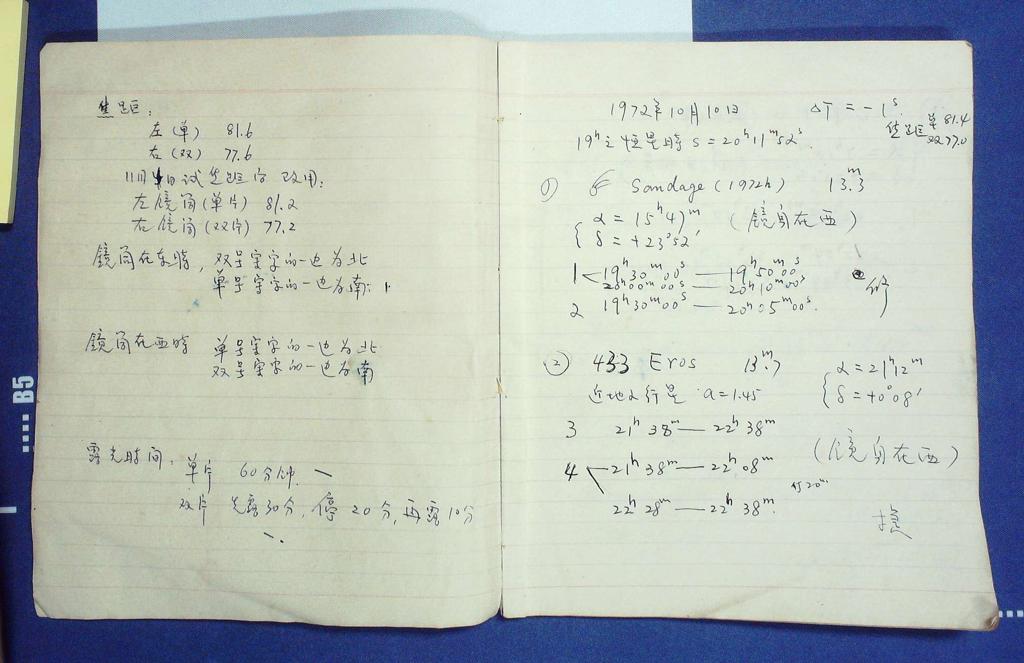 焦距:
左(单) 81.6
右(双) 77.6
试焦距后改用:
左镜筒(单片) 81.2
右镜筒(双片) 77.2
镜筒在东时, 双号字的一边为北
单号字的一边为南:
镜筒在西时 单号字的一边为北
双号字的一边为南
露光时间, 单片 60分钟.
双片 先露30分, 停20分, 再露10分
B5
1972年10月10日 ΔT = -1ˢ
焦距 单 81.4
双 77.0
19ʰ之恒星時 S = 20ʰ11ᵐ52ˢ.
① Sandage (1972h) 13.ᵐ3
α = 15ʰ41ᵐ (镜身在西)
δ = +23°52′
1 19ʰ30ᵐ00ˢ — 19ʰ50ᵐ00ˢ
20ʰ00ᵐ00ˢ — 20ʰ10ᵐ00ˢ
2 19ʰ30ᵐ00ˢ — 20ʰ05ᵐ00ˢ.
② 433 Eros 13.ᵐ7 α = 21ʰ12ᵐ
近地小行星 a = 1.45 δ = +0°08′
3 21ʰ38ᵐ — 22ʰ38ᵐ
4 21ʰ38ᵐ — 22ʰ08ᵐ (镜身在西)
停20ᵐ
22ʰ28ᵐ — 22ʰ38ᵐ.